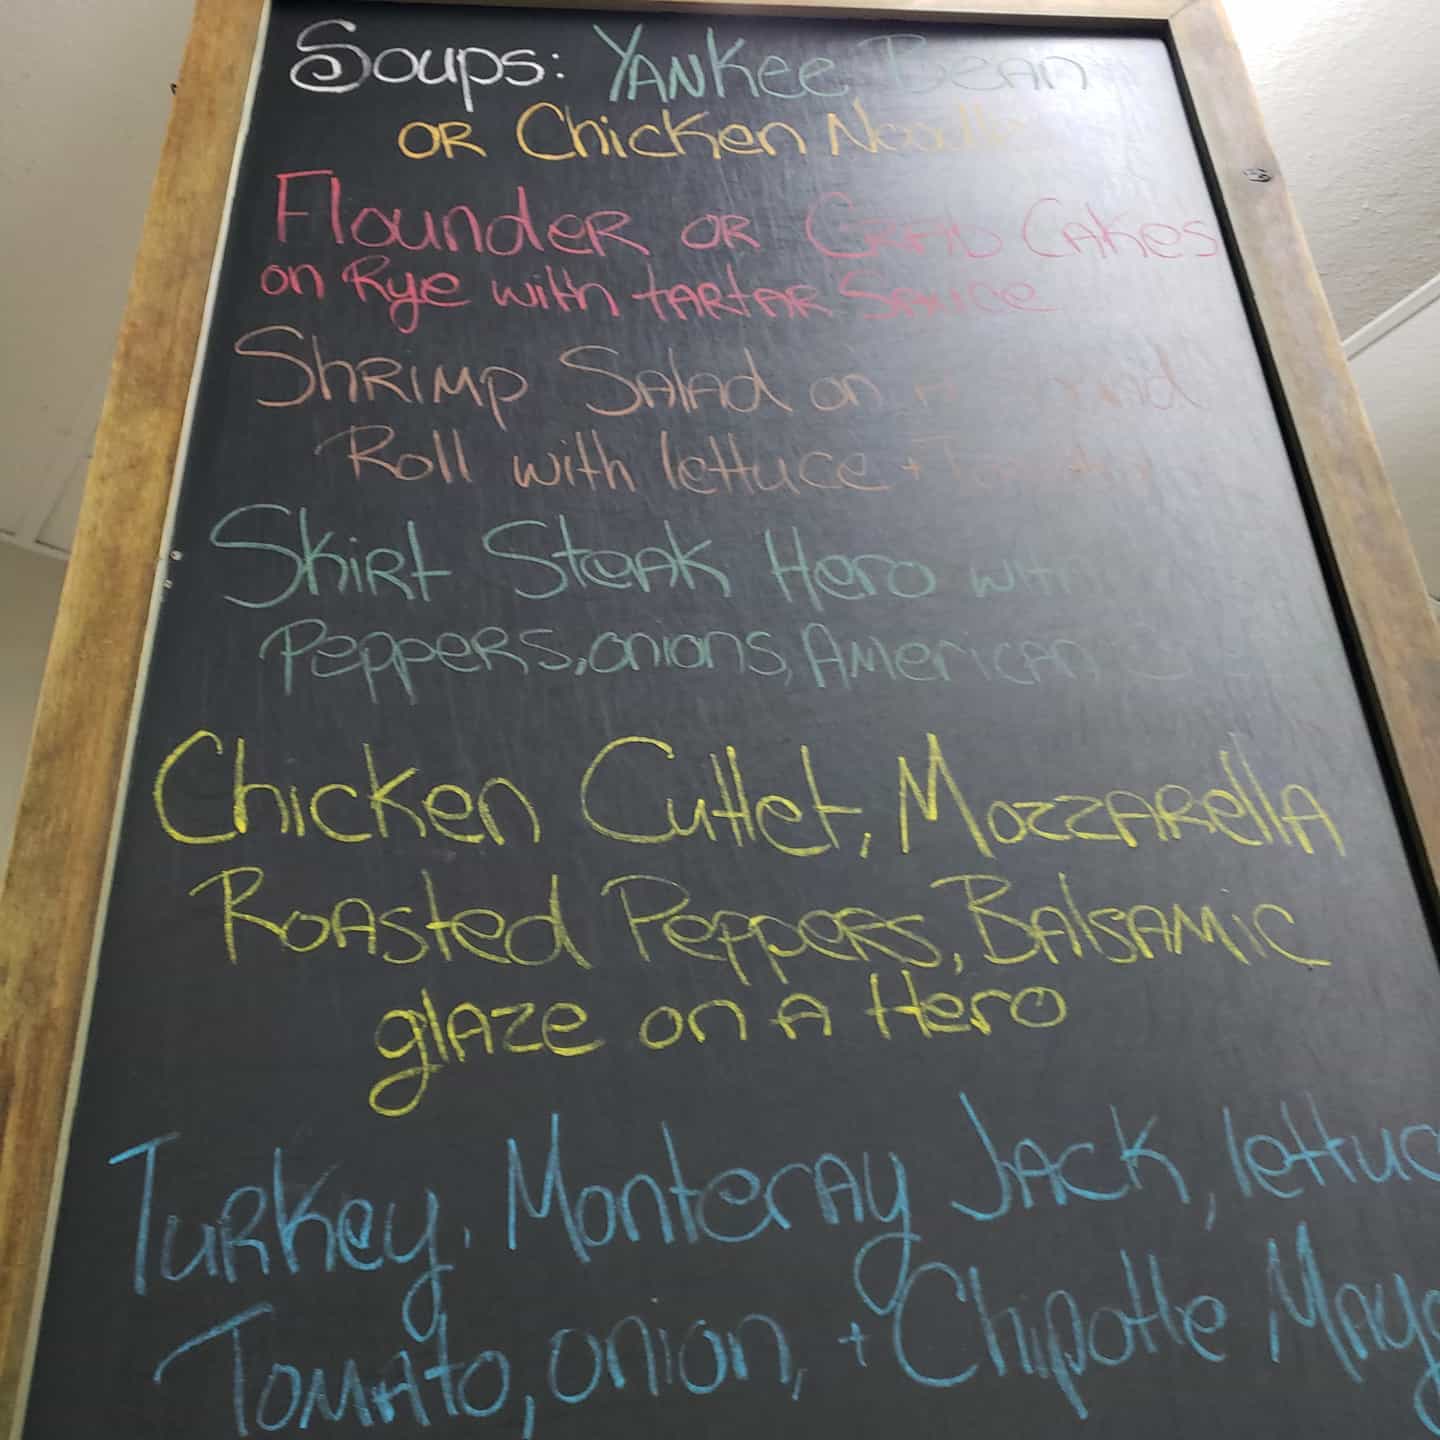 Soups: Yankee Bean
or Chicken Noodle
Flounder or Crab Cakes
on Rye with tartar Sauce
Shrimp Salad on a
Roll with lettuce + Tomato
Skirt Steak Hero with
Peppers, onions, American
Chicken Cutlet, Mozzarella
Roasted Peppers, Balsamic
glaze on a Hero
Turkey, Monteray Jack, lettuc
Tomato, onion, + Chipotle Mayo